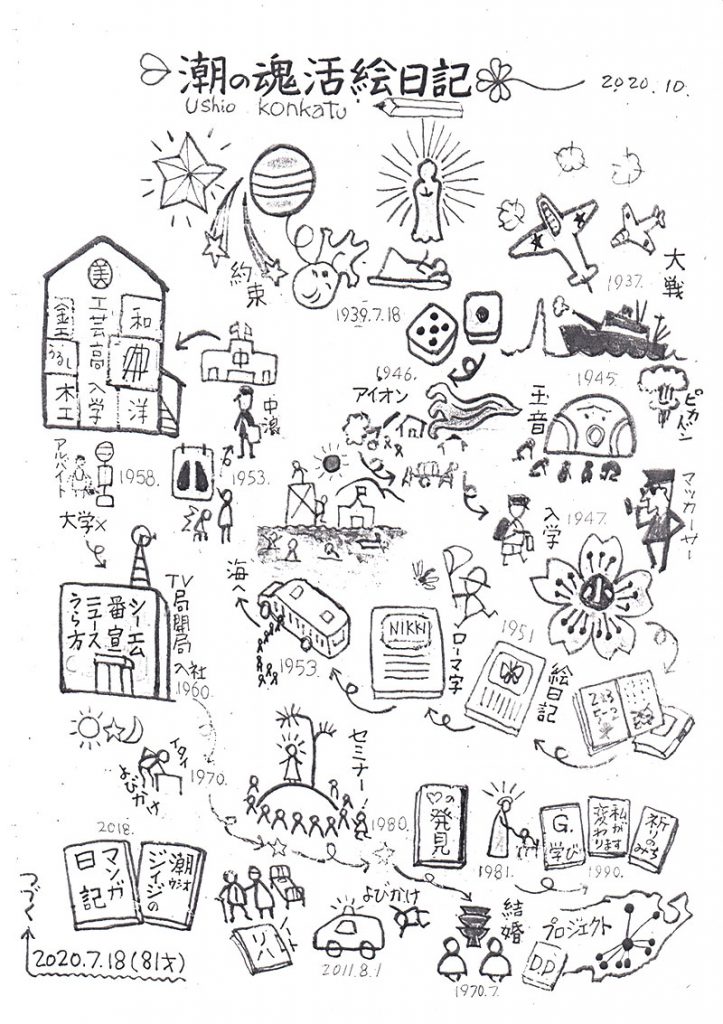 潮の魂活絵日記
Ushio konkatu
2020.10.
約束
1939.7.18
1937.
大戦
1945.
ピカドン
玉音
1946.
アイオン
マッカーサー
1947.
入学
美
金工
うるし
木工
工芸高入学
和
洋
中
中浪
1953.
アルバイト
1958.
大学×
TV局開局
入社
1960.
シーエム
番宣
ニュース
うら方
海へ
1953.
NIKKI
ローマ字
1951
絵日記
イタイ
1970.
よびかけ
セミナー!
1980.
♡の発見
1981.
G.
学び
私が変わります
祈りのみち
1990.
2018.
潮ウシオジイジの
マンガ日記
つづく
2020.7.18(81才)
リハノート
2011.8.1
よびかけ
結婚
1970.7.
プロジェクト
DD